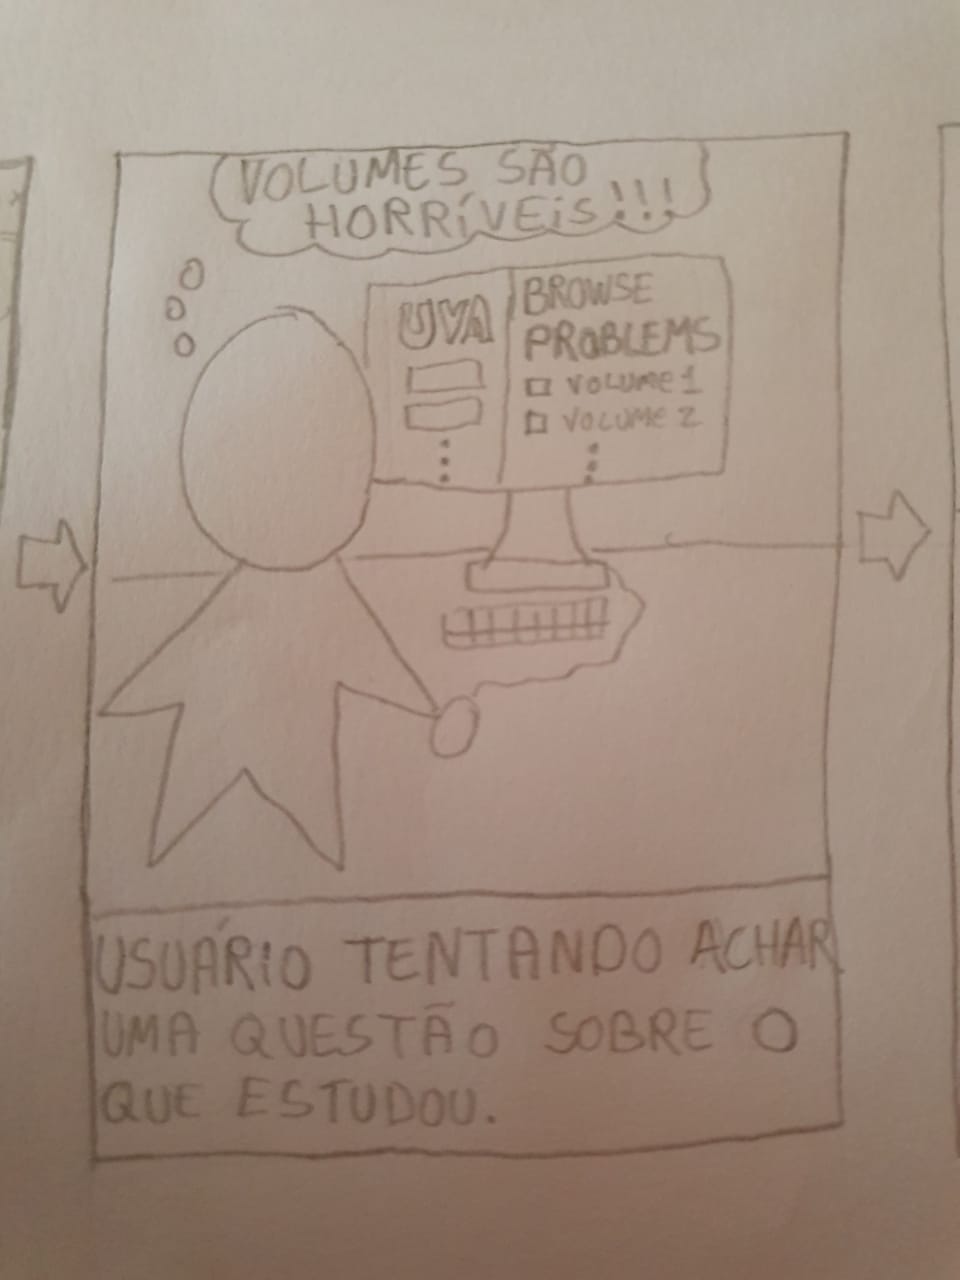 VOLUMES SÃO
HORRÍVEIS!!!
UVA
BROWSE
PROBLEMS
VOLUME 1
VOLUME 2
USUÁRIO TENTANDO ACHAR
UMA QUESTÃO SOBRE O
QUE ESTUDOU.